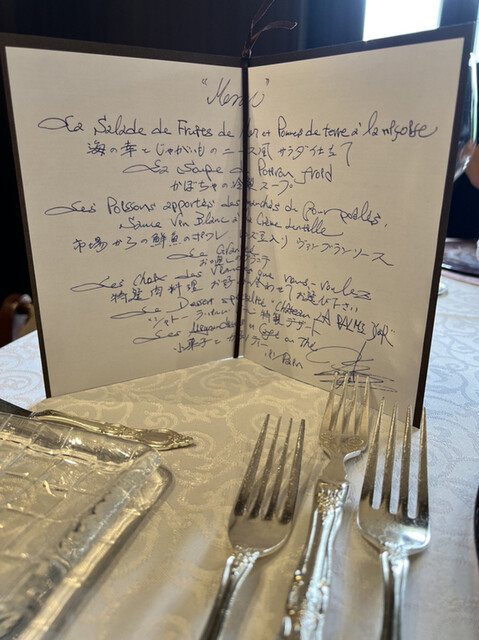 "Menu"
La Salade de Fruits de Mer et Pomme de terre à la niçoise
海の幸とじゃがいものニース風 サラダ仕立て
La Soupe de Potiron froid
かぼちゃの冷製スープ
Les Poissons apportés des marchés du jour poêlés,
Sauce Vin Blanc à la Crème
市場からの鮮魚のポワレ 入り ヴァンブランソース
Le Granité
お口直しの
Les Choix des Viandes que vous voulez
特選肉料理 お好みに合わせてお選び下さい
Le Dessert spécialité "Château LA PALME D'OR"
"シャトー 特製デザート
Les Mignardises Café ou Thé
小菓子と
Pain